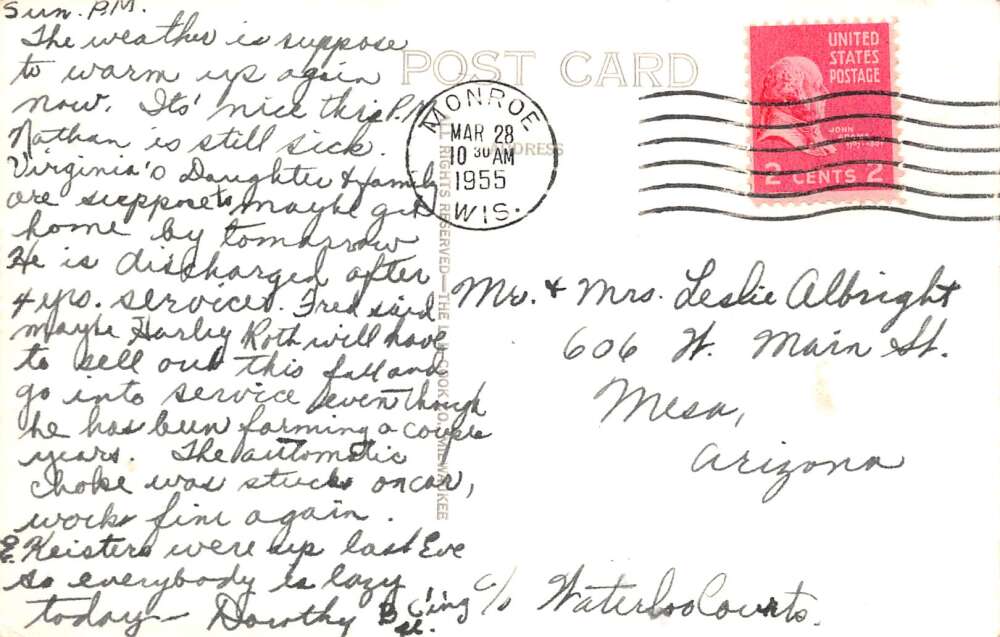 Sun. P.M.
The weather is suppose
to warm up again
now. Its' nice this P.M.
Nathan is still sick.
Virginia's Daughter & family
are suppose to maybe get
home by tomorrow
He is discharged after
4 yrs. service. Fred said
maybe Harley Roth will have
to sell out this fall and
go into service even though
he has been farming a couple
years. The automatic
choke was stuck on car,
works fine again.
Keisters were up last Eve
so everybody is lazy
today — Dorothy
POST CARD
ADDRESS
ALL RIGHTS RESERVED—THE L.L. COOK CO. MILWAUKEE
MONROE
MAR 28
10 30 AM
1955
WIS.
UNITED
STATES
POSTAGE
JOHN
ADAMS
2 CENTS 2
Mr. & Mrs. Leslie Albright
606 W. Main St.
Mesa,
Arizona
c/o Waterloo Courts.